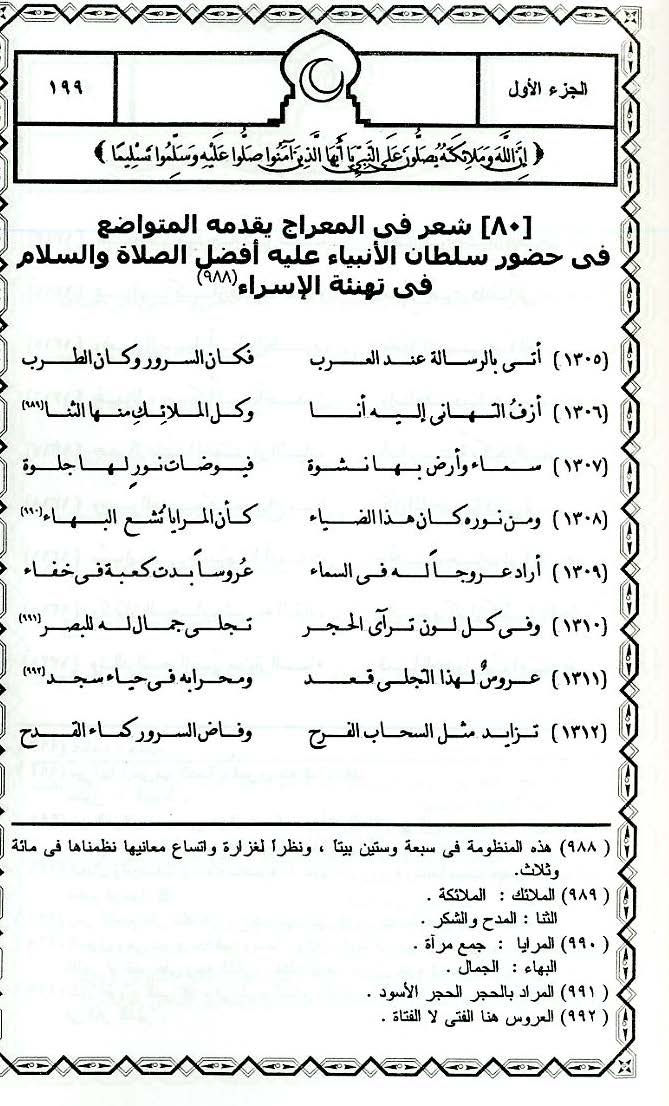 الجزء الأول
١٩٩
﴿ إِنَّ اللَّهَ وَمَلَائِكَتَهُ يُصَلُّونَ عَلَى النَّبِيِّ يَا أَيُّهَا الَّذِينَ آمَنُوا صَلُّوا عَلَيْهِ وَسَلِّمُوا تَسْلِيمًا ﴾
[٨٠] شعر فى المعراج يقدمه المتواضع
فى حضور سلطان الأنبياء عليه أفضل الصلاة والسلام
فى تهنئة الإسراء(٩٨٨)
(١٣٠٥) أتى بالرسالة عند العرب فكان السرور وكان الطرب
(١٣٠٦) أزفُ التهانى إليه أنا وكل الملائِك منها الثنا(٩٨٩)
(١٣٠٧) سماء وأرض بها نشوة فيوضات نورٍ لها جلوة
(١٣٠٨) ومن نوره كان هذا الضياء كأن المرايا تُشع البهاء(٩٩٠)
(١٣٠٩) أراد عروجاً له فى السماء عُروساً بدت كعبة فى خفاء
(١٣١٠) وفى كل لون ترآى الحجر تجلى جمال له للبصر(٩٩١)
(١٣١١) عروسٌ لهذا التجلى قعد ومحرابه فى حياء سجد(٩٩٢)
(١٣١٢) تزايد مثل السحاب الفرح وفاض السرور كماء القدح
(٩٨٨) هذه المنظومة فى سبعة وستين بيتاً ، ونظراً لغزارة واتساع معانيها نظمناها فى مائة
وثلاث.
(٩٨٩) الملائك : الملائكة .
الثنا : المدح والشكر .
(٩٩٠) المرايا : جمع مرآة .
البهاء : الجمال .
(٩٩١) المراد بالحجر الحجر الأسود .
(٩٩٢) العروس هنا الفتى لا الفتاة .